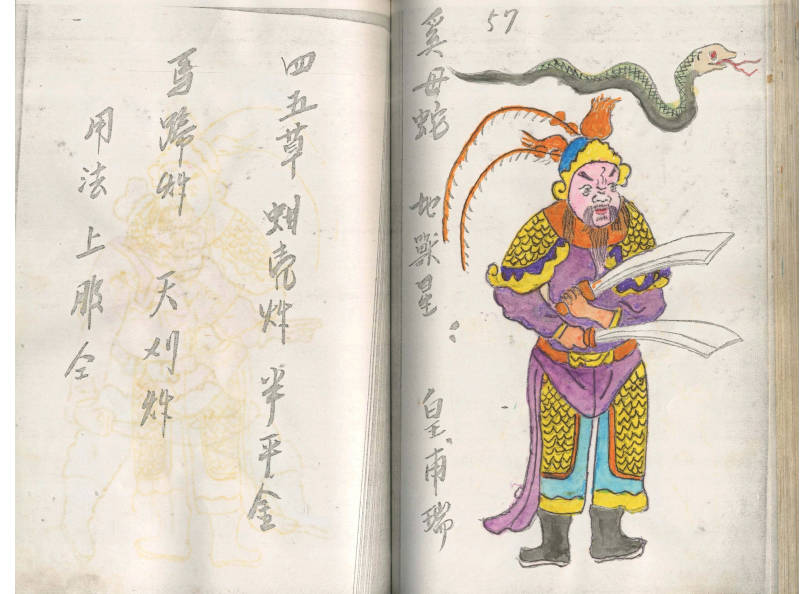 57
奚母蛇 地獸星： 皇甫瑞
四五草 蚶壳炸 半平金
馬蹄炸 天刈炸
用法上服仝